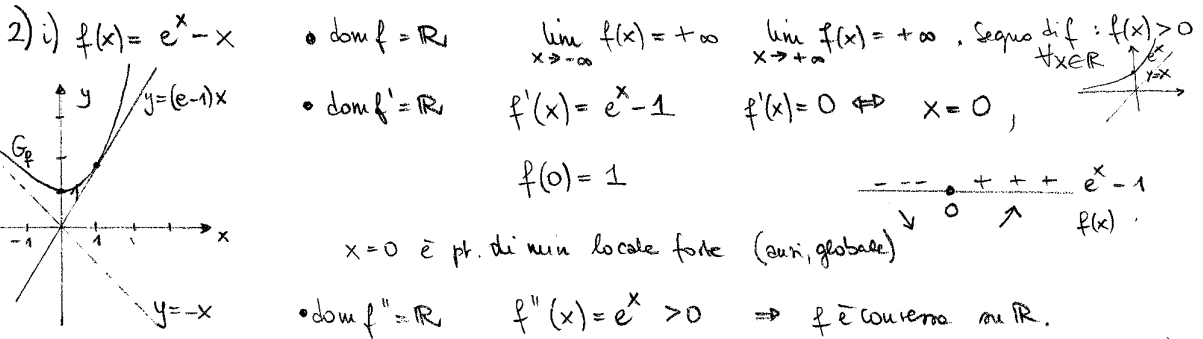 2) i) f(x) = e^x - x • dom f = ℝ lim x→-∞ f(x) = +∞ lim x→+∞ f(x) = +∞. Segno di f : f(x) > 0 ∀x∈ℝ
e^x
y=x
y y=(e-1)x • dom f' = ℝ f'(x) = e^x - 1 f'(x) = 0 ⇔ x = 0,
G_f f(0) = 1
--- + + + e^x - 1
1 0 ↘ ↗ f(x)
-1 1 x x=0 è pt. di min locale forte (anzi, globale)
y=-x • dom f'' = ℝ f''(x) = e^x > 0 ⇒ f è convessa su ℝ.